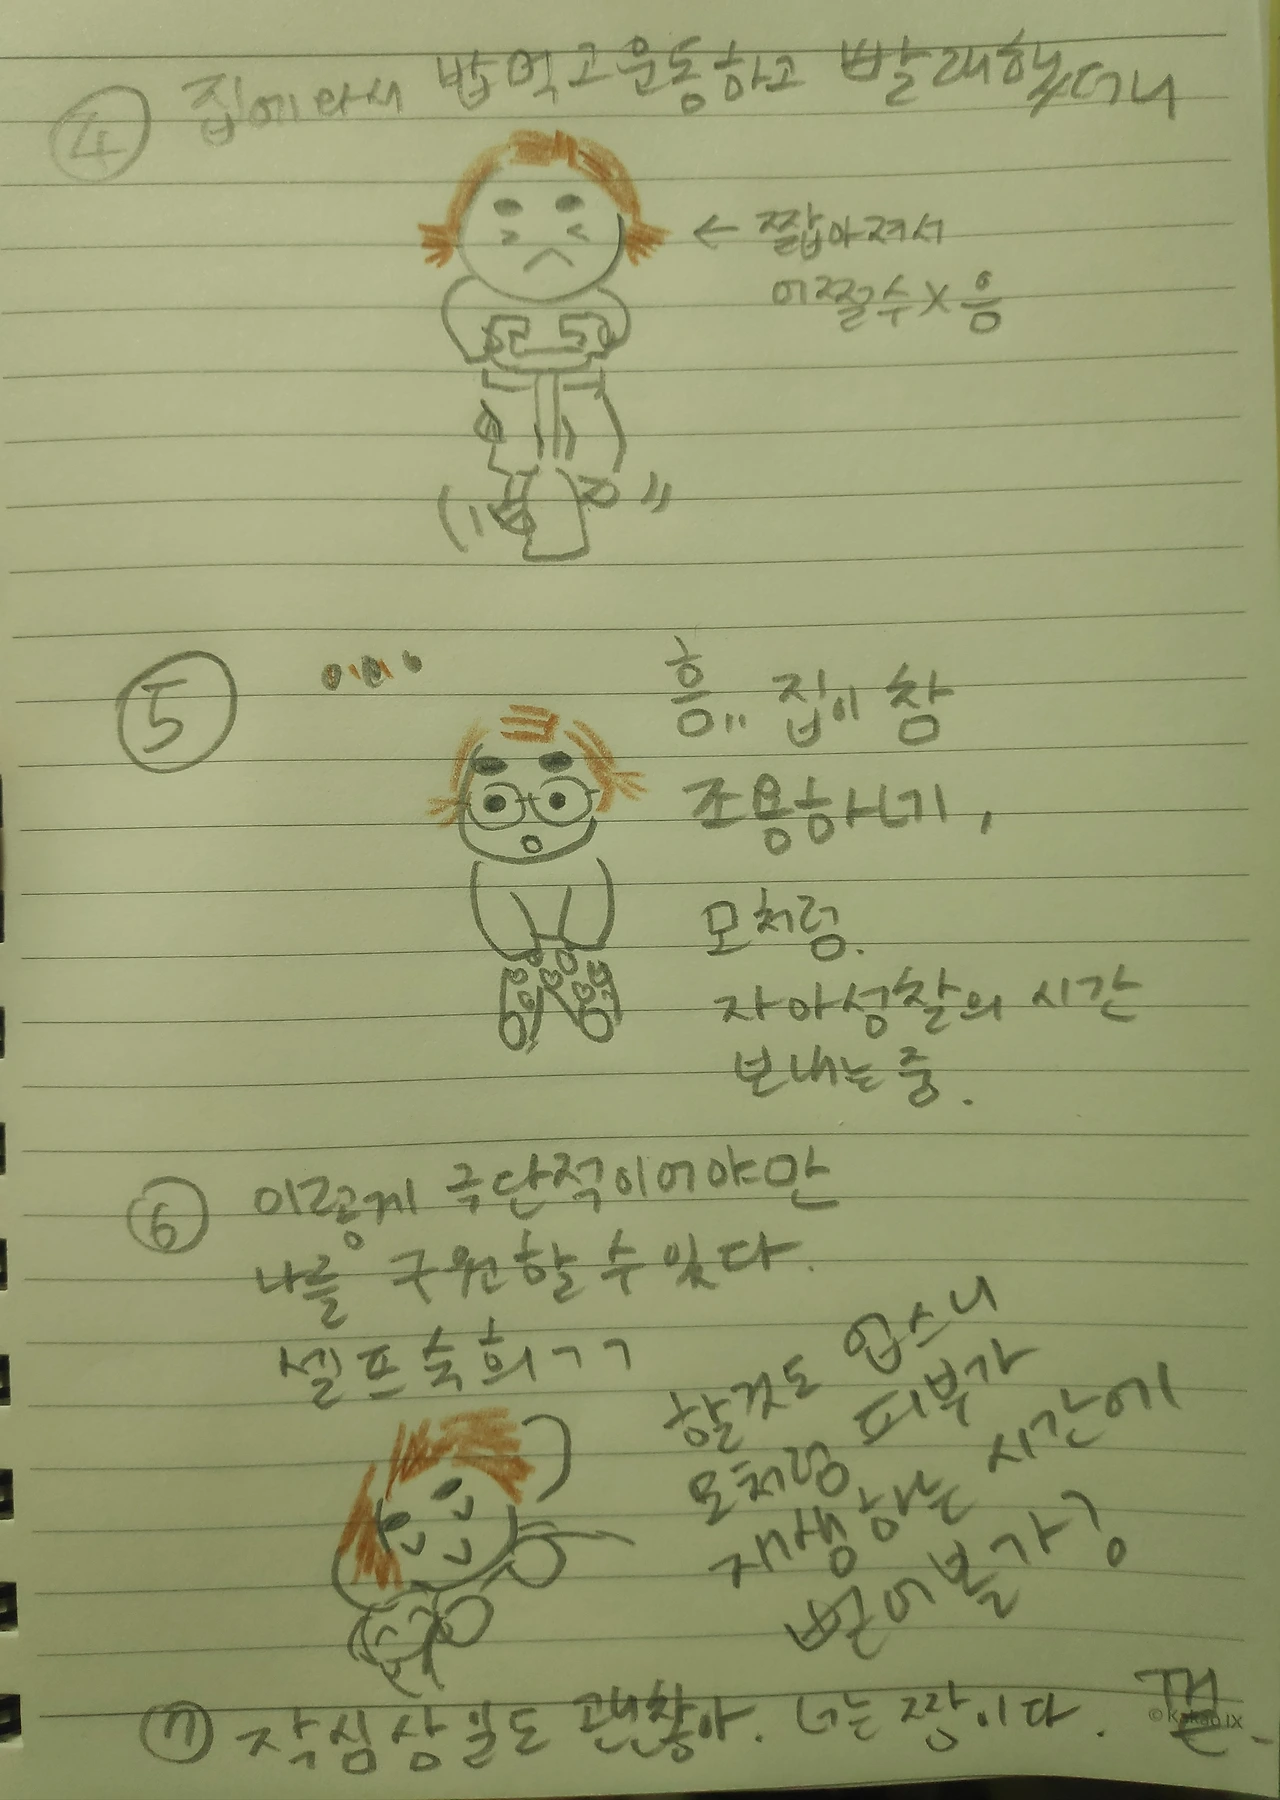 ④ 집에와서 밥먹고운동하고 빨래했더니
← 짧아져서
어쩔수×음
⑤
흠,, 집이 참
조용하네,
모처럼.
자아성찰의 시간
보내는 중.
⑥ 이렇게 극단적이어야만
나를 구원할 수 있다.
셀프숙희ㄱㄱ
할것도 업스니
모처럼 피부가
재생하는 시간에
벋어볼가?
⑦ 작심삼일도 괜찮아. 너는 짱이다. 끝.
© kakao IX